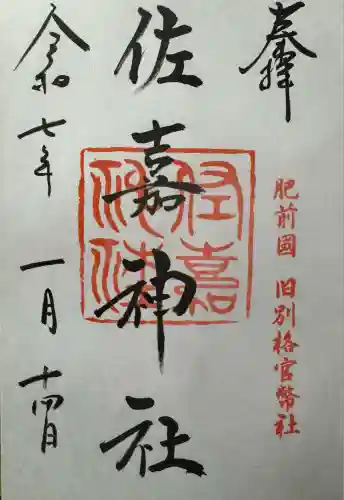 奉拝
肥前國 旧別格官幣社
佐嘉神社
佐嘉神社
令和七年 一月 十四日